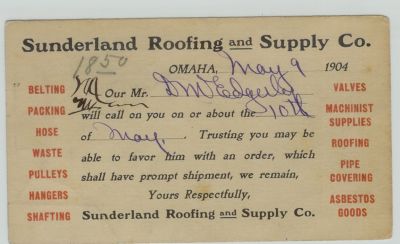 Sunderland Roofing and Supply Co.
1850
OMAHA, May 9 1904
Our Mr. D M Edgerley
will call on you on or about the 10th
of May. Trusting you may be
able to favor him with an order, which
shall have prompt shipment, we remain,
Yours Respectfully,
Sunderland Roofing and Supply Co.
BELTING
PACKING
HOSE
WASTE
PULLEYS
HANGERS
SHAFTING
VALVES
MACHINIST
SUPPLIES
ROOFING
PIPE
COVERING
ASBESTOS
GOODS